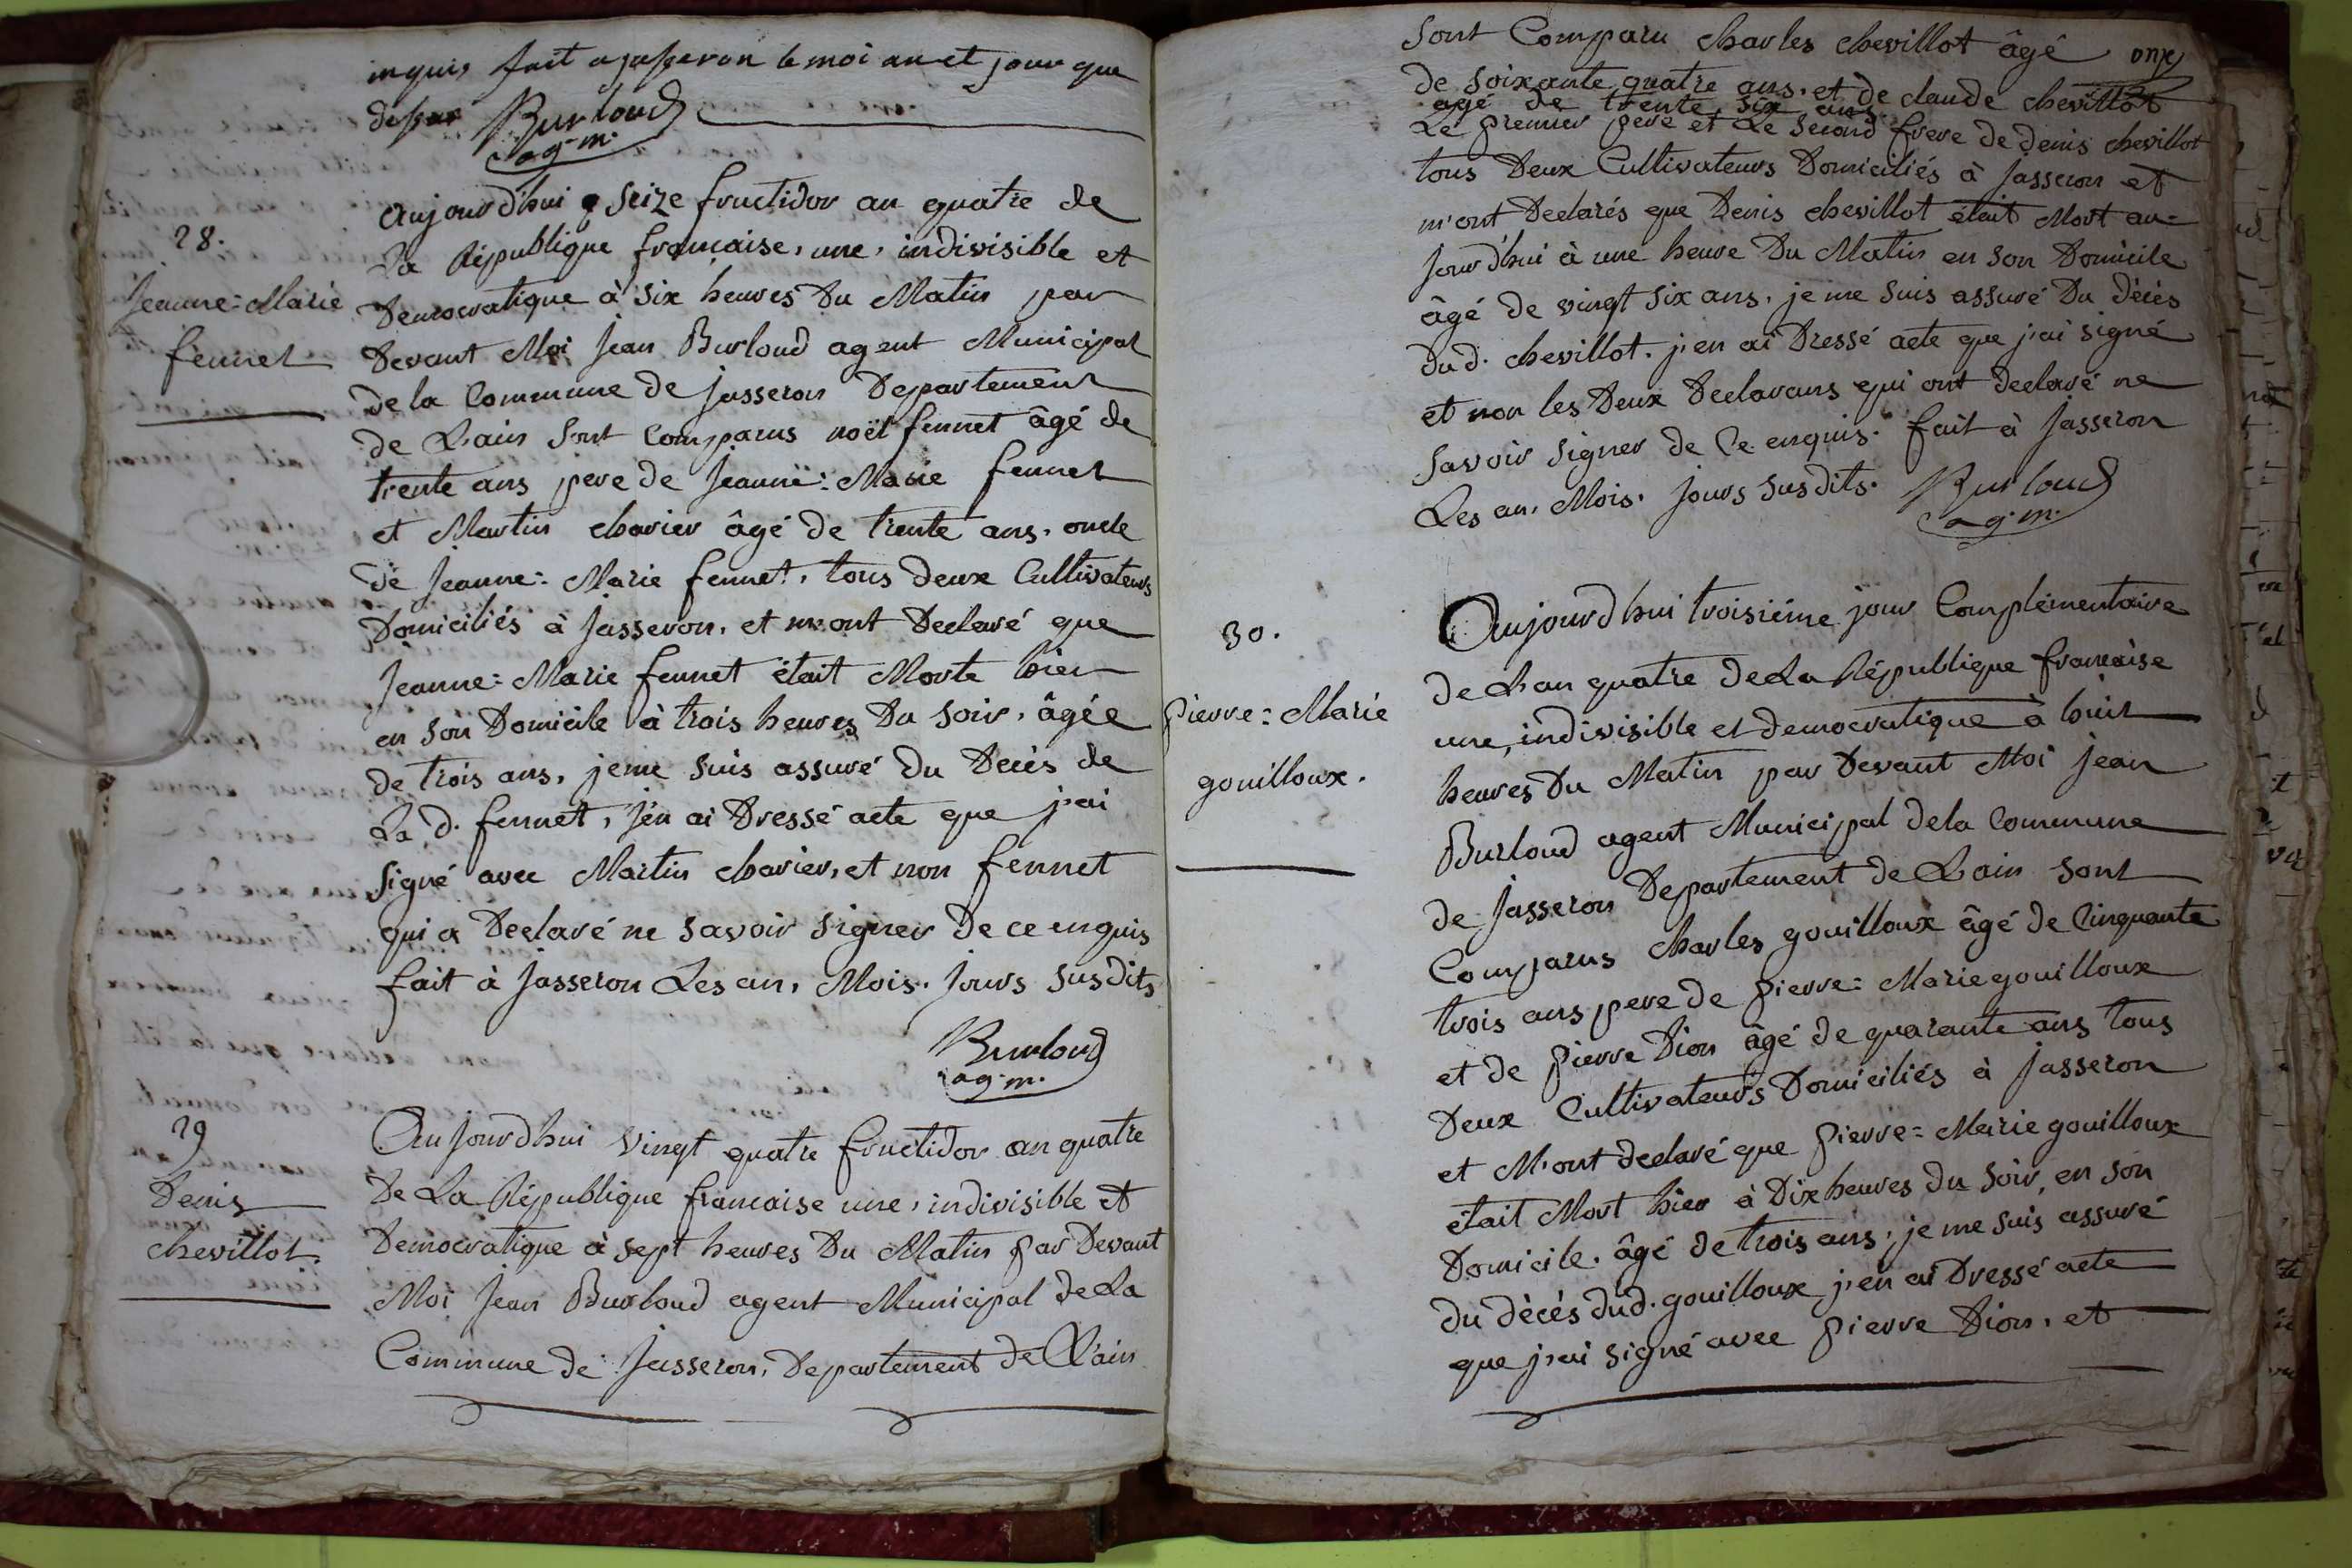 inquis fait a jasseron le moi an et jour que
dessus Burloud
ag. m.
28.
Jeanne=Marie
fennet
Aujourd'hui seize fructidor an quatre de
La République francaise, une, indivisible et
Democratique à six heures Du Matin par
Devant Moi Jean Burloud agent Municipal
de la Commune de Jasseron Departement
de L'ain sont Comparus noël fennet âgé de
trente ans pere de Jeanne=Marie fennet
et Martin charier âgé de trente ans, oncle
de Jeanne=Marie fennet, tous deux Cultivateurs
Domiciliés à Jasseron, et m'ont Declaré que
Jeanne=Marie fennet était Morte hier
en son Domicile à trois heures Du soir, âgée
de trois ans, je me suis assuré Du Décès de
La d. fennet, j'en ai Dressé acte que j'ai
signé avec Martin charier, et non fennet
qui a Declaré ne savoir signer De ce enquis
fait à Jasseron Les an, Mois. Jours susdits
Burloud
ag. m.
29
Denis
chevillot.
Aujourd'hui vingt quatre fructidor an quatre
De La République francaise une, indivisible et
Democratique à sept heures Du Matin par Devant
Moi Jean Burloud agent Municipal De La
Commune de Jasseron, Departement de L'ain
onze
sont Comparu charles chevillot âgé
de soixante quatre ans, et de claude chevillot
agé de trente six ans
Le premier pere et Le second frere de denis chevillot
tous Deux Cultivateurs Domiciliés à Jasseron et
m'ont Declarés que Denis chevillot était Mort au-
jourd'hui à une heure Du Matin en son Domicile
âgé de vingt six ans, je me suis assuré Du décès
du d. chevillot. j'en ai Dressé acte que j'ai signé
et non les Deux Declarans qui ont declaré ne
savoir signer de Ce enquis. fait à Jasseron
Les an, Mois. Jours susdits. Burloud
ag. m.
30.
pierre=Marie
gouilloux.
Aujourd'hui troisiéme jour Complémentaire
de L'an quatre de La République francaise
une, indivisible et democratique à huit
heures Du Matin par Devant Moi Jean
Burloud agent Municipal de la Commune
de Jasseron Departement de L'ain sont
Comparus charles gouilloux âgé de Cinquante
trois ans pere de pierre=Marie gouilloux
et de pierre Dion âgé de quarante ans tous
Deux Cultivateurs Domiciliés à Jasseron
et M'ont declaré que pierre=Marie gouilloux
était Mort hier à Dix heures du Soir, en son
Domicile. âgé de trois ans, je me suis assuré
du décès dud. gouilloux j'en ai Dressé acte
que j'ai signé avec pierre Dion, et